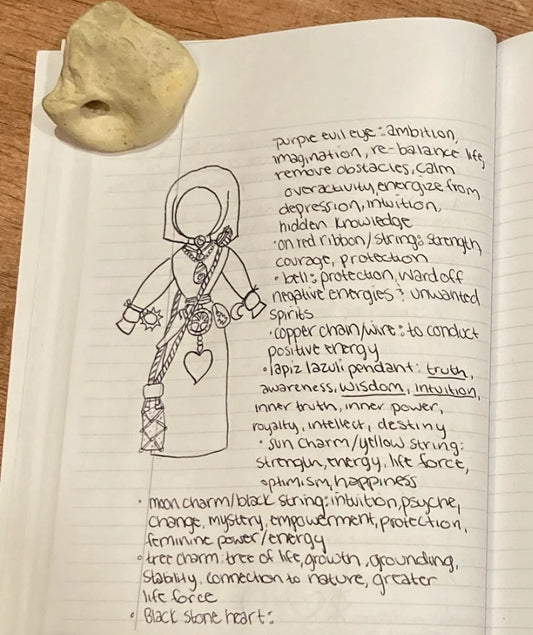 purple evil eye: ambition,
imagination, re-balance life,
remove obstacles, calm
overactivity, energize from
depression, intuition,
hidden knowledge
• on red ribbon/string: strength,
courage, protection
• bell: protection, ward off
negative energies & unwanted
spirits
• copper chain/wire: to conduct
positive energy
• lapiz lazuli pendant: truth,
awareness, wisdom, intuition,
inner truth, inner power,
royalty, intellect, destiny
• sun charm/yellow string:
strength, energy, life force,
optimism, happiness
• moon charm/black string: intuition, psyche,
change, mystery, empowerment, protection,
feminine power/energy
• tree charm: tree of life, growth, grounding,
stability, connection to nature, greater
life force
• Black stone heart: